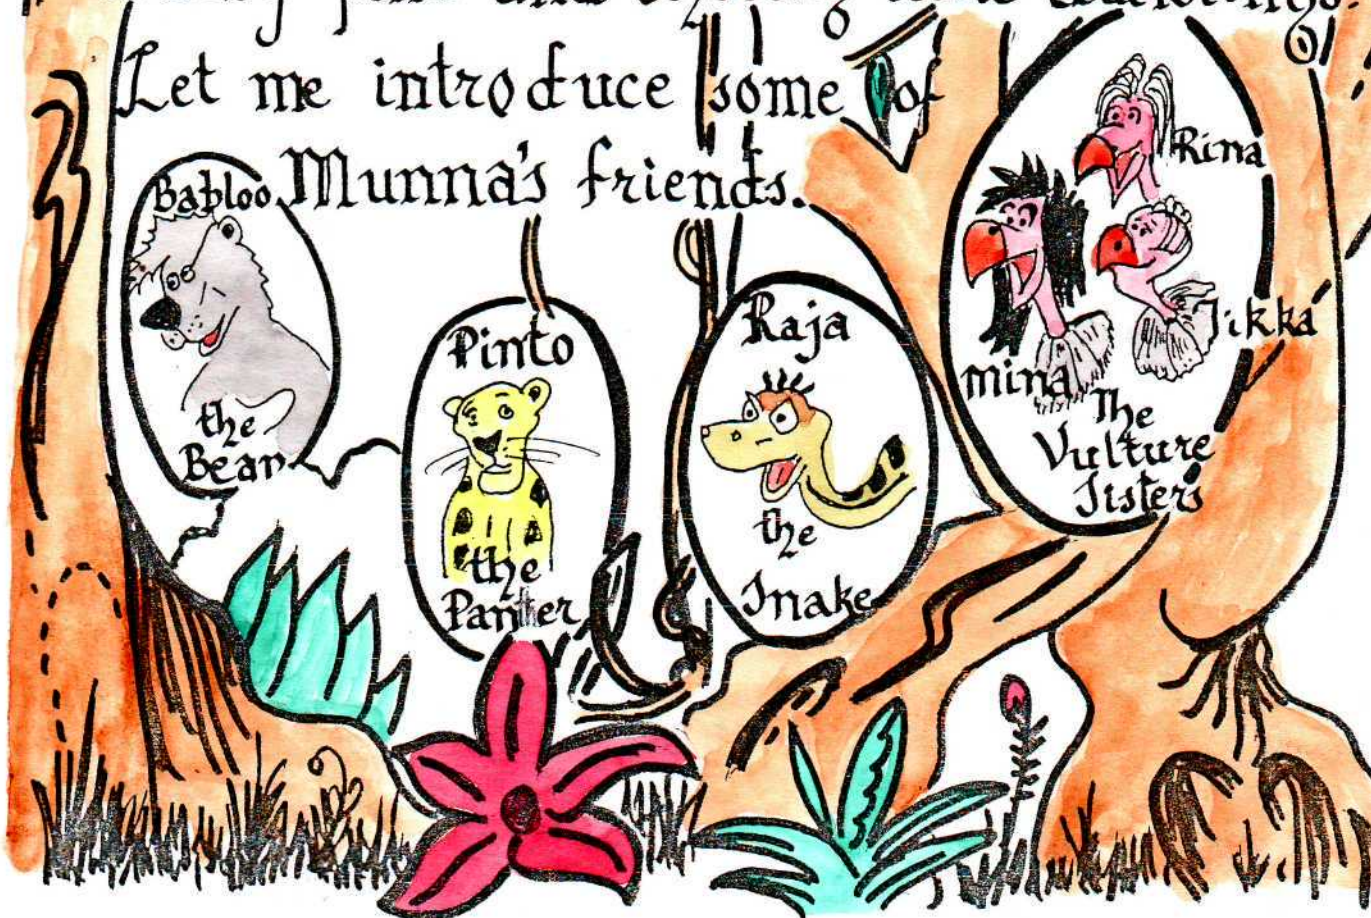 and
Let me introduce some of
Munna's friends.
Babloo
the
Bear
Pinto
the
Panther
Raja
the
Snake
Rina
Mina
The
Vulture
Sisters